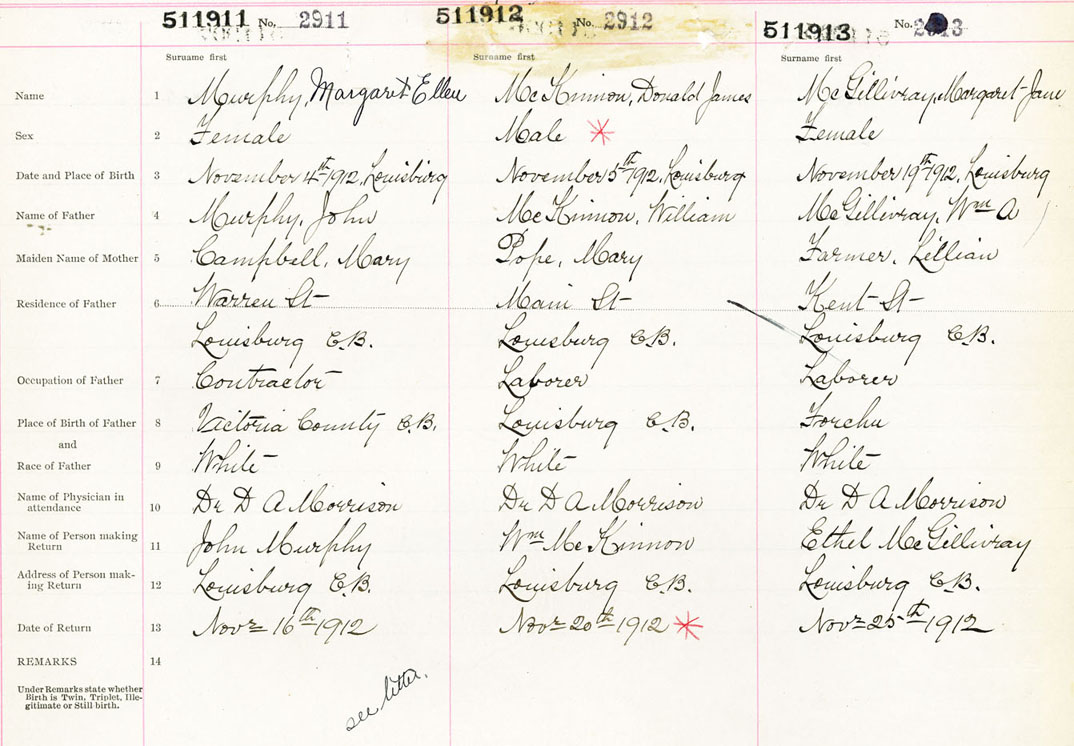 511911 No. 2911 511912 No. 2912 511913 No. 2913
Surname first Surname first Surname first
Name 1 Murphy, Margaret Ellen McKinnon, Donald James McGillivray, Margaret Jane
Sex 2 Female Male Female
Date and Place of Birth 3 November 4th 1912, Louisburg November 5th 1912, Louisburg November 19th 1912, Louisburg
Name of Father 4 Murphy, John McKinnon, William McGillivray, Wm A
Maiden Name of Mother 5 Campbell, Mary Pope, Mary Farmer, Lillian
Residence of Father 6 Warren St Main St Kent St
Louisburg C.B. Louisburg C.B. Louisburg C.B.
Occupation of Father 7 Contractor Laborer Laborer
Place of Birth of Father 8 Victoria County C.B. Louisburg C.B. Forchu
and
Race of Father 9 White White White
Name of Physician in
attendance 10 Dr D A Morrison Dr D A Morrison Dr D A Morrison
Name of Person making
Return 11 John Murphy Wm McKinnon Ethel McGillivray
Address of Person mak-
ing Return 12 Louisburg C.B. Louisburg C.B. Louisburg C.B.
Date of Return 13 Novr 16th 1912 Novr 20th 1912 Novr 25th 1912
REMARKS 14
Under Remarks state whether
Birth is Twin, Triplet, Ille-
gitimate or Still birth.
see letter.